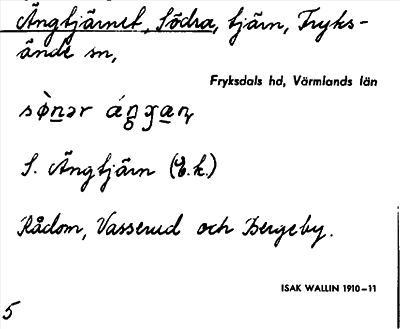 Ängtjärnet, Södra, tjärn, Fryks-
ände sn,
Fryksdals hd, Värmlands län
S. Ängtjärn (E.k.)
Rådom, Vasserud och Bergeby.
ISAK WALLIN 1910–11
5